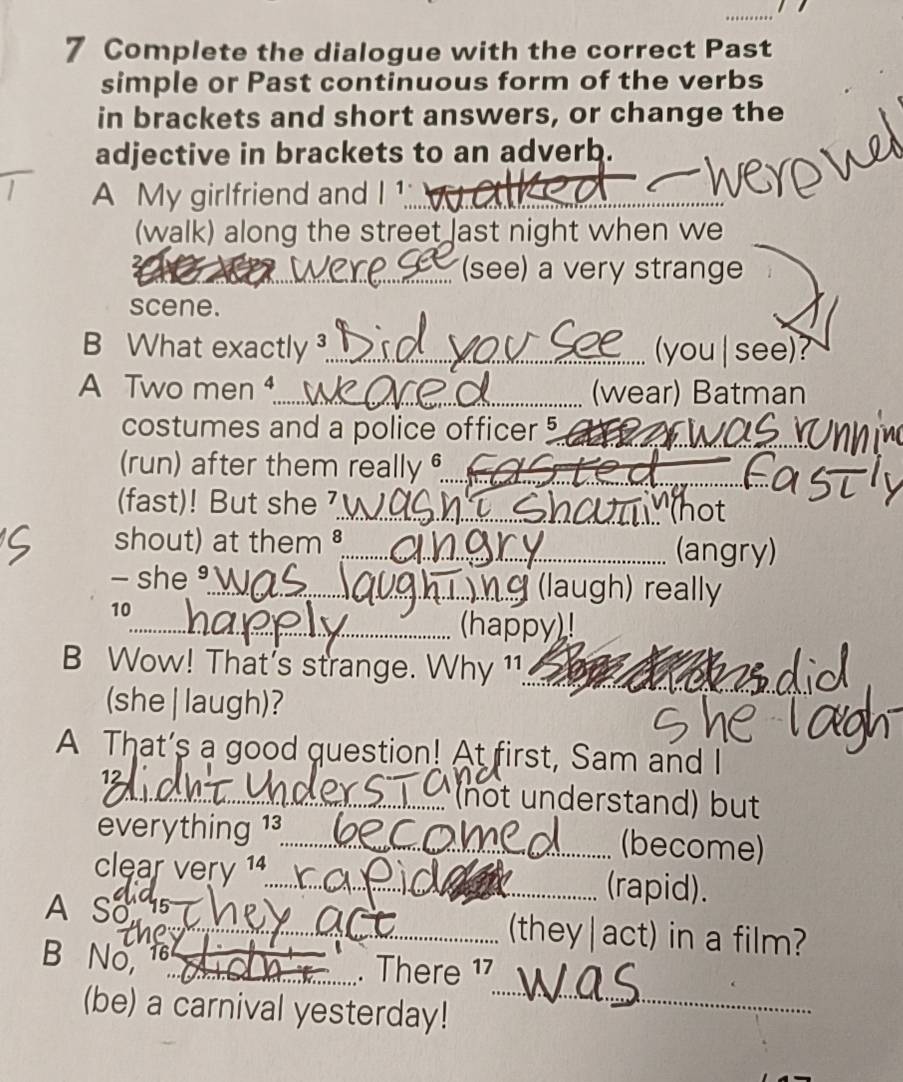 7 Complete the dialogue with the correct Past
simple or Past continuous form of the verbs
in brackets and short answers, or change the
adjective in brackets to an adverb.
A My girlfriend and I 1 walked
(walk) along the street last night when we
2 were see (see) a very strange
scene.
B What exactly 3 Did you see (you | see)?
A Two men 4 weared (wear) Batman
costumes and a police officer 5 was running
(run) after them really 6 fasted fastly
(fast)! But she 7 wasn't shouting (not
shout) at them 8 angry (angry)
– she 9 was laughting (laugh) really
10 happly (happy)!
B Wow! That's strange. Why 11 did
(she | laugh)? she lagh
A That's a good question! At first, Sam and I
12 didn't understand (not understand) but
everything 13 becomed (become)
clear very 14 rapid (rapid).
A So, 15 did they act (they | act) in a film?
B No, 16 they didn't. There 17 was
(be) a carnival yesterday!